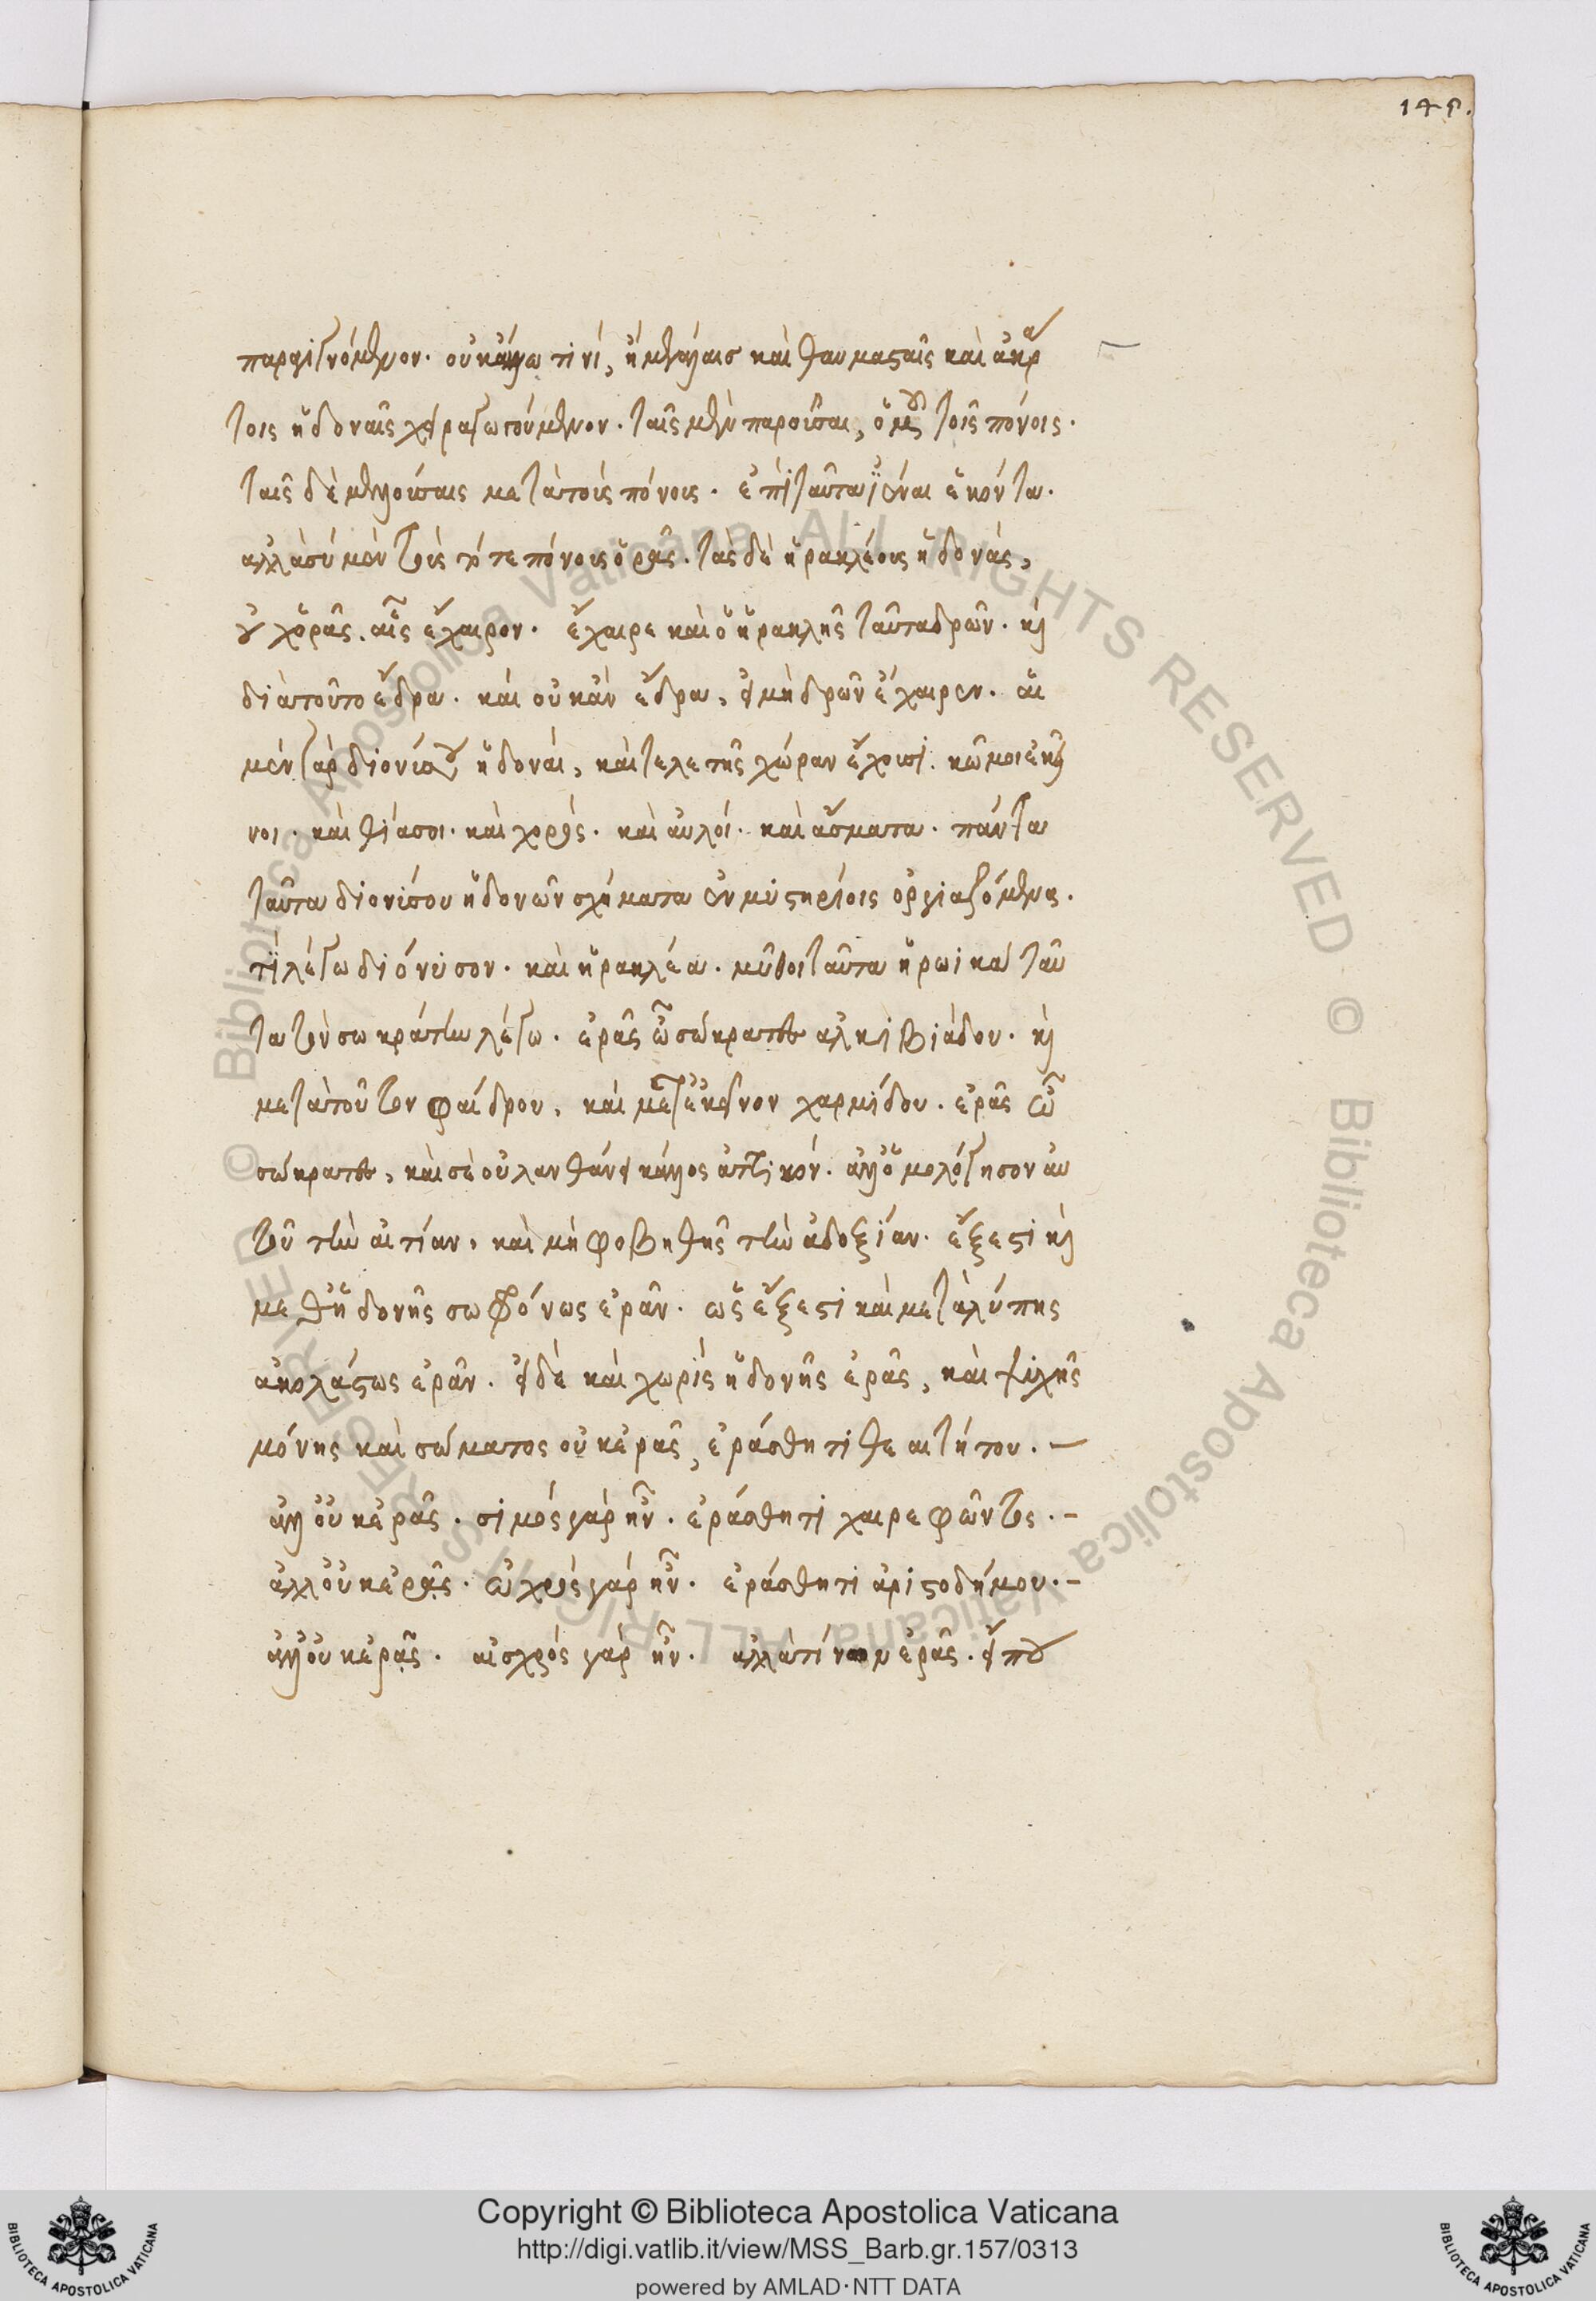 145.
παραγιγνόμενον. οὐκ ἄλλω τινί, ἢ μεγάλαισ καὶ θαυμασταῖς καὶ ἀκρά
τοις ἡδοναῖς χειραγωγούμενον. ταῖς μὲν παρούσαις, ὁμοῦ τοῖς πόνοις.
ταῖς δὲ μενούσαις μετὰ τοὺς πόνους. ἐπὶ ταῦτα ἰέναι ἑκόντα.
ἀλλὰ σὺ μὲν τοὺς τότε πόνους ὁρᾶς. τὰς δὲ ἡρακλέους ἡδονάς,
οὐχ ὁρᾶς. αἷς ἔχαιρον. ἔχαιρε καὶ ὁ ἡρακλῆς ταῦτα δρῶν. καὶ
διὰ τοῦτο ἔδρα. καὶ οὐκ ἂν ἔδρα, εἰ μὴ δρῶν ἔχαιρεν. αἱ
μὲν γὰρ διονύσου ἡδοναί, καὶ τελετῆς χώραν ἔχουσι. κῶμοι ἐκεῖ
νοι. καὶ θίασοι. καὶ χοροί. καὶ αὐλοί. καὶ ἄσματα. πάντα
ταῦτα διονίσου ἡδονῶν σχήματα ἐν μυστηρίοις ὀργιαζόμενα.
τί λέγω διόνυσον. καὶ ἡρακλέα. μῦθοι ταῦτα ἡρωικά ταῦ
τα τὸν σωκράτην λέγω. ἐρᾶς ὦ σώκρατες ἀλκιβιάδου. καὶ
μετὰ τοῦτον φαίδρου, καὶ μετ' ἐκεῖνον χαρμίδου. ἐρᾶς ὦ
σώκρατες, καὶ σὲ οὐ λανθάνει κάλλος ἀττικόν. ἀλλ' ὁμολόγησον αὐ
τοῦ τὴν αἰτίαν, καὶ μὴ φοβηθῆς τὴν ἀδοξίαν. ἔξεστι καὶ
μεθ' ἡδονῆς σωφρόνως ἐρᾶν. ὡς ἔξεστι καὶ μετὰ λύπης
ἀκολάστως ἐρᾶν. εἰ δὲ καὶ χωρὶς ἡδονῆς ἐρᾶς, καὶ ψυχῆς
μόνης καὶ σώματος οὐκ ἐρᾶς, ἐράσθητι θεαιτήτου. —
ἀλλ' οὐκ ἐρᾶς. σιμὸς γὰρ ἦν. ἐράσθητι χαιρεφῶντος. -
ἀλλ' οὐκ ἐρᾶς. ὠχρὸς γὰρ ἦν. ἐράσθητι ἀριστοδήμου. -
ἀλλ' οὐκ ἐρᾶς. αἰσχρὸς γὰρ ἦν. ἀλλὰ τίνων ἐρᾶς. εἴ που
Copyright © Biblioteca Apostolica Vaticana
http://digi.vatlib.it/view/MSS_Barb.gr.157/0313
powered by AMLAD·NTT DATA
BIBLIOTECA APOSTOLICA VATICANA
BIBLIOTECA APOSTOLICA VATICANA
© Biblioteca Apostolica Vaticana ALL RIGHTS RESERVED
© Biblioteca Apostolica Vaticana ALL RIGHTS RESERVED